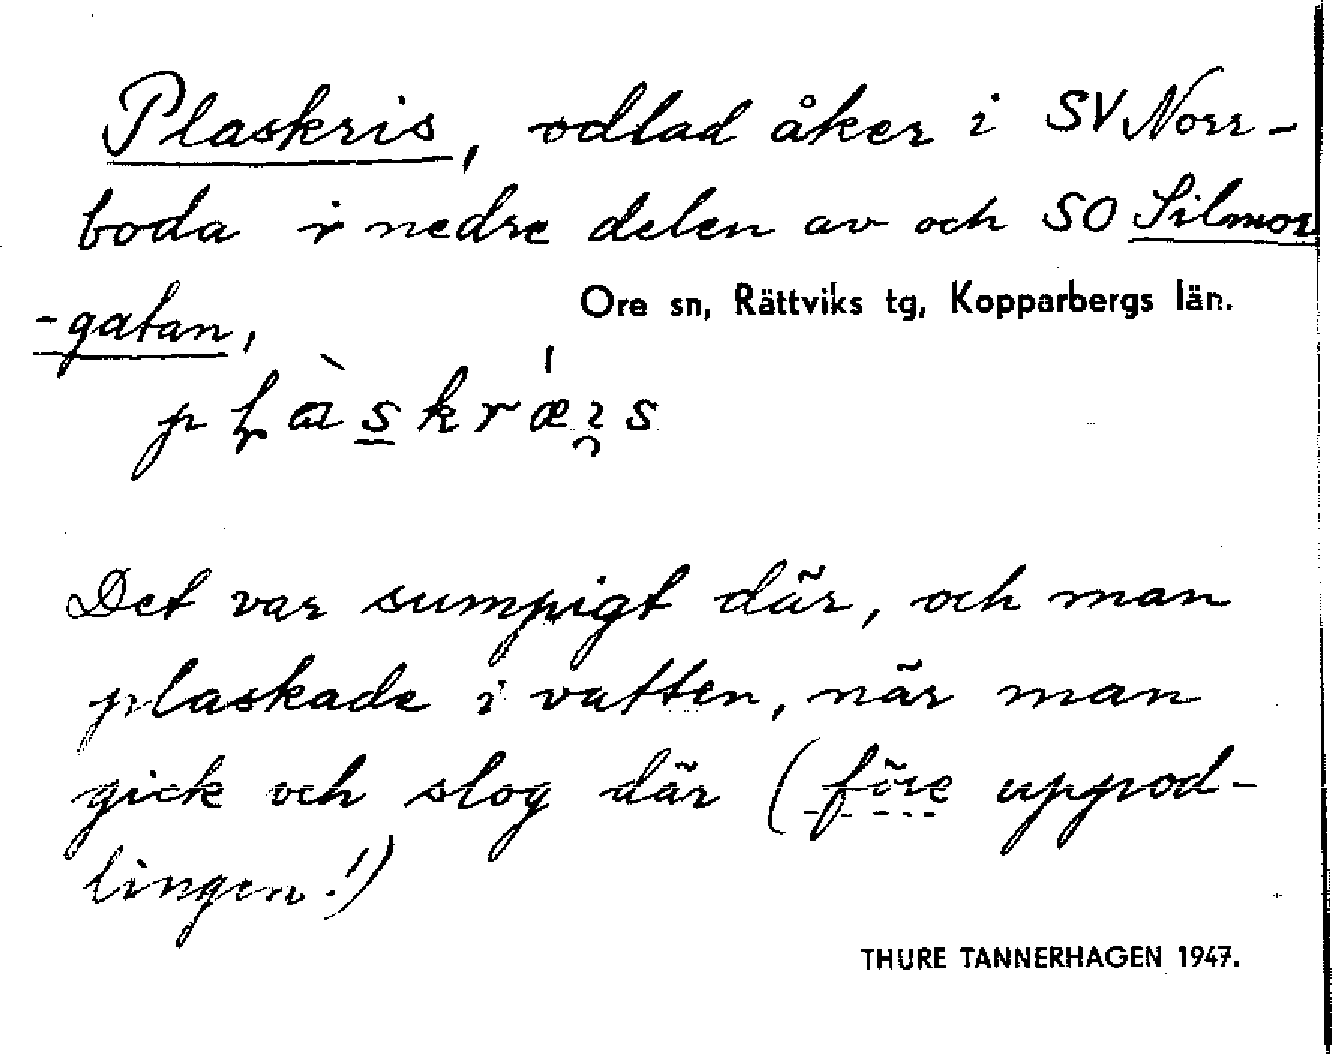 Plaskris, odlad åker i SV Norr-
boda i nedre delen av och SO Silmor
-gatan,
Ore sn, Rättviks tg, Kopparbergs län.
Det var sumpigt där, och man
plaskade i vatten, när man
gick och slog där (före uppod-
lingen!)
THURE TANNERHAGEN 1947.